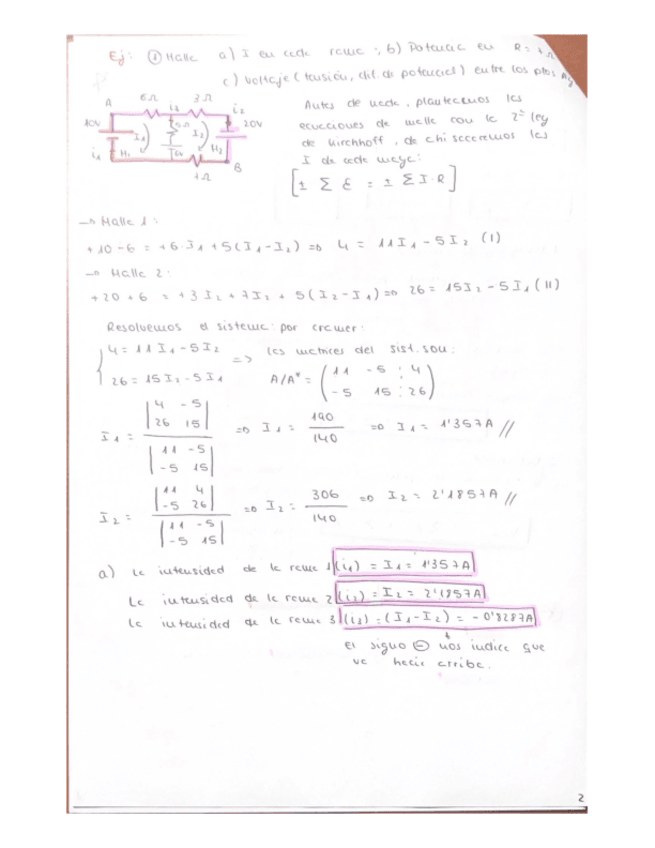 Ej: ① Malla a) I en cada rama; b) Potencia en R=
c) Voltaje (tensión, dif. de potencial) entre los ptos A
A 6Ω 3Ω
i3 i2
10V 5Ω 20V
I1 I2
i1 H1 6V H2
B
7Ω
Antes de nada, planteamos las
ecuaciones de malla con la 2ª ley
de Kirchhoff, de ahí sacaremos las
I de cada malla:
[± Σ ε = ± Σ I·R]
→ Malla 1:
+10-6 = +6·I1+5(I1-I2) => 4 = 11I1-5I2 (I)
→ Malla 2:
+20+6 = +3I2+7I2+5(I2-I1) => 26 = 15I2-5I1 (II)
Resolvemos el sistema por cramer:
4 = 11I1-5I2 => las matrices del sist. son:
26 = 15I2-5I1 A/A* = (11 -5 : 4
-5 15 : 26)
|4 -5|
|26 15|
I1 = => I1 = 190/140 => I1 = 1'357A //
|11 -5|
|-5 15|
|11 4|
|-5 26|
I2 = => I2 = 306/140 => I2 = 2'1857A //
|11 -5|
|-5 15|
a) La intensidad de la rama 1 (i1) = I1 = 1'357A
La intensidad de la rama 2 (i2) = I2 = 2'1857A
La intensidad de la rama 3 (i3) = (I1-I2) = -0'8287A
El signo ⊖ nos indica que
va hacia arriba.
2